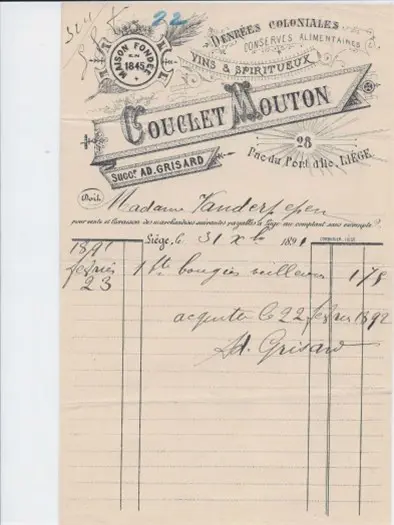 22
DENRÉES COLONIALES
CONSERVES ALIMENTAIRES
VINS & SPIRITUEUX
MAISON FONDÉE
EN
1845
COUCLET MOUTON
Succr AD. GRISARD
28
Rue du Pont d'Ile, LIÉGE.
Doit
Madame Vanderpepen
pour vente et livraison des marchandises suivantes payables à Liège au comptant sans escompte.
Liège, le 31 Xbre 1891
1891
février
23 1 bte bougies veilleuses 1 75
acquitté le 22 février 1892
Ad. Grisard